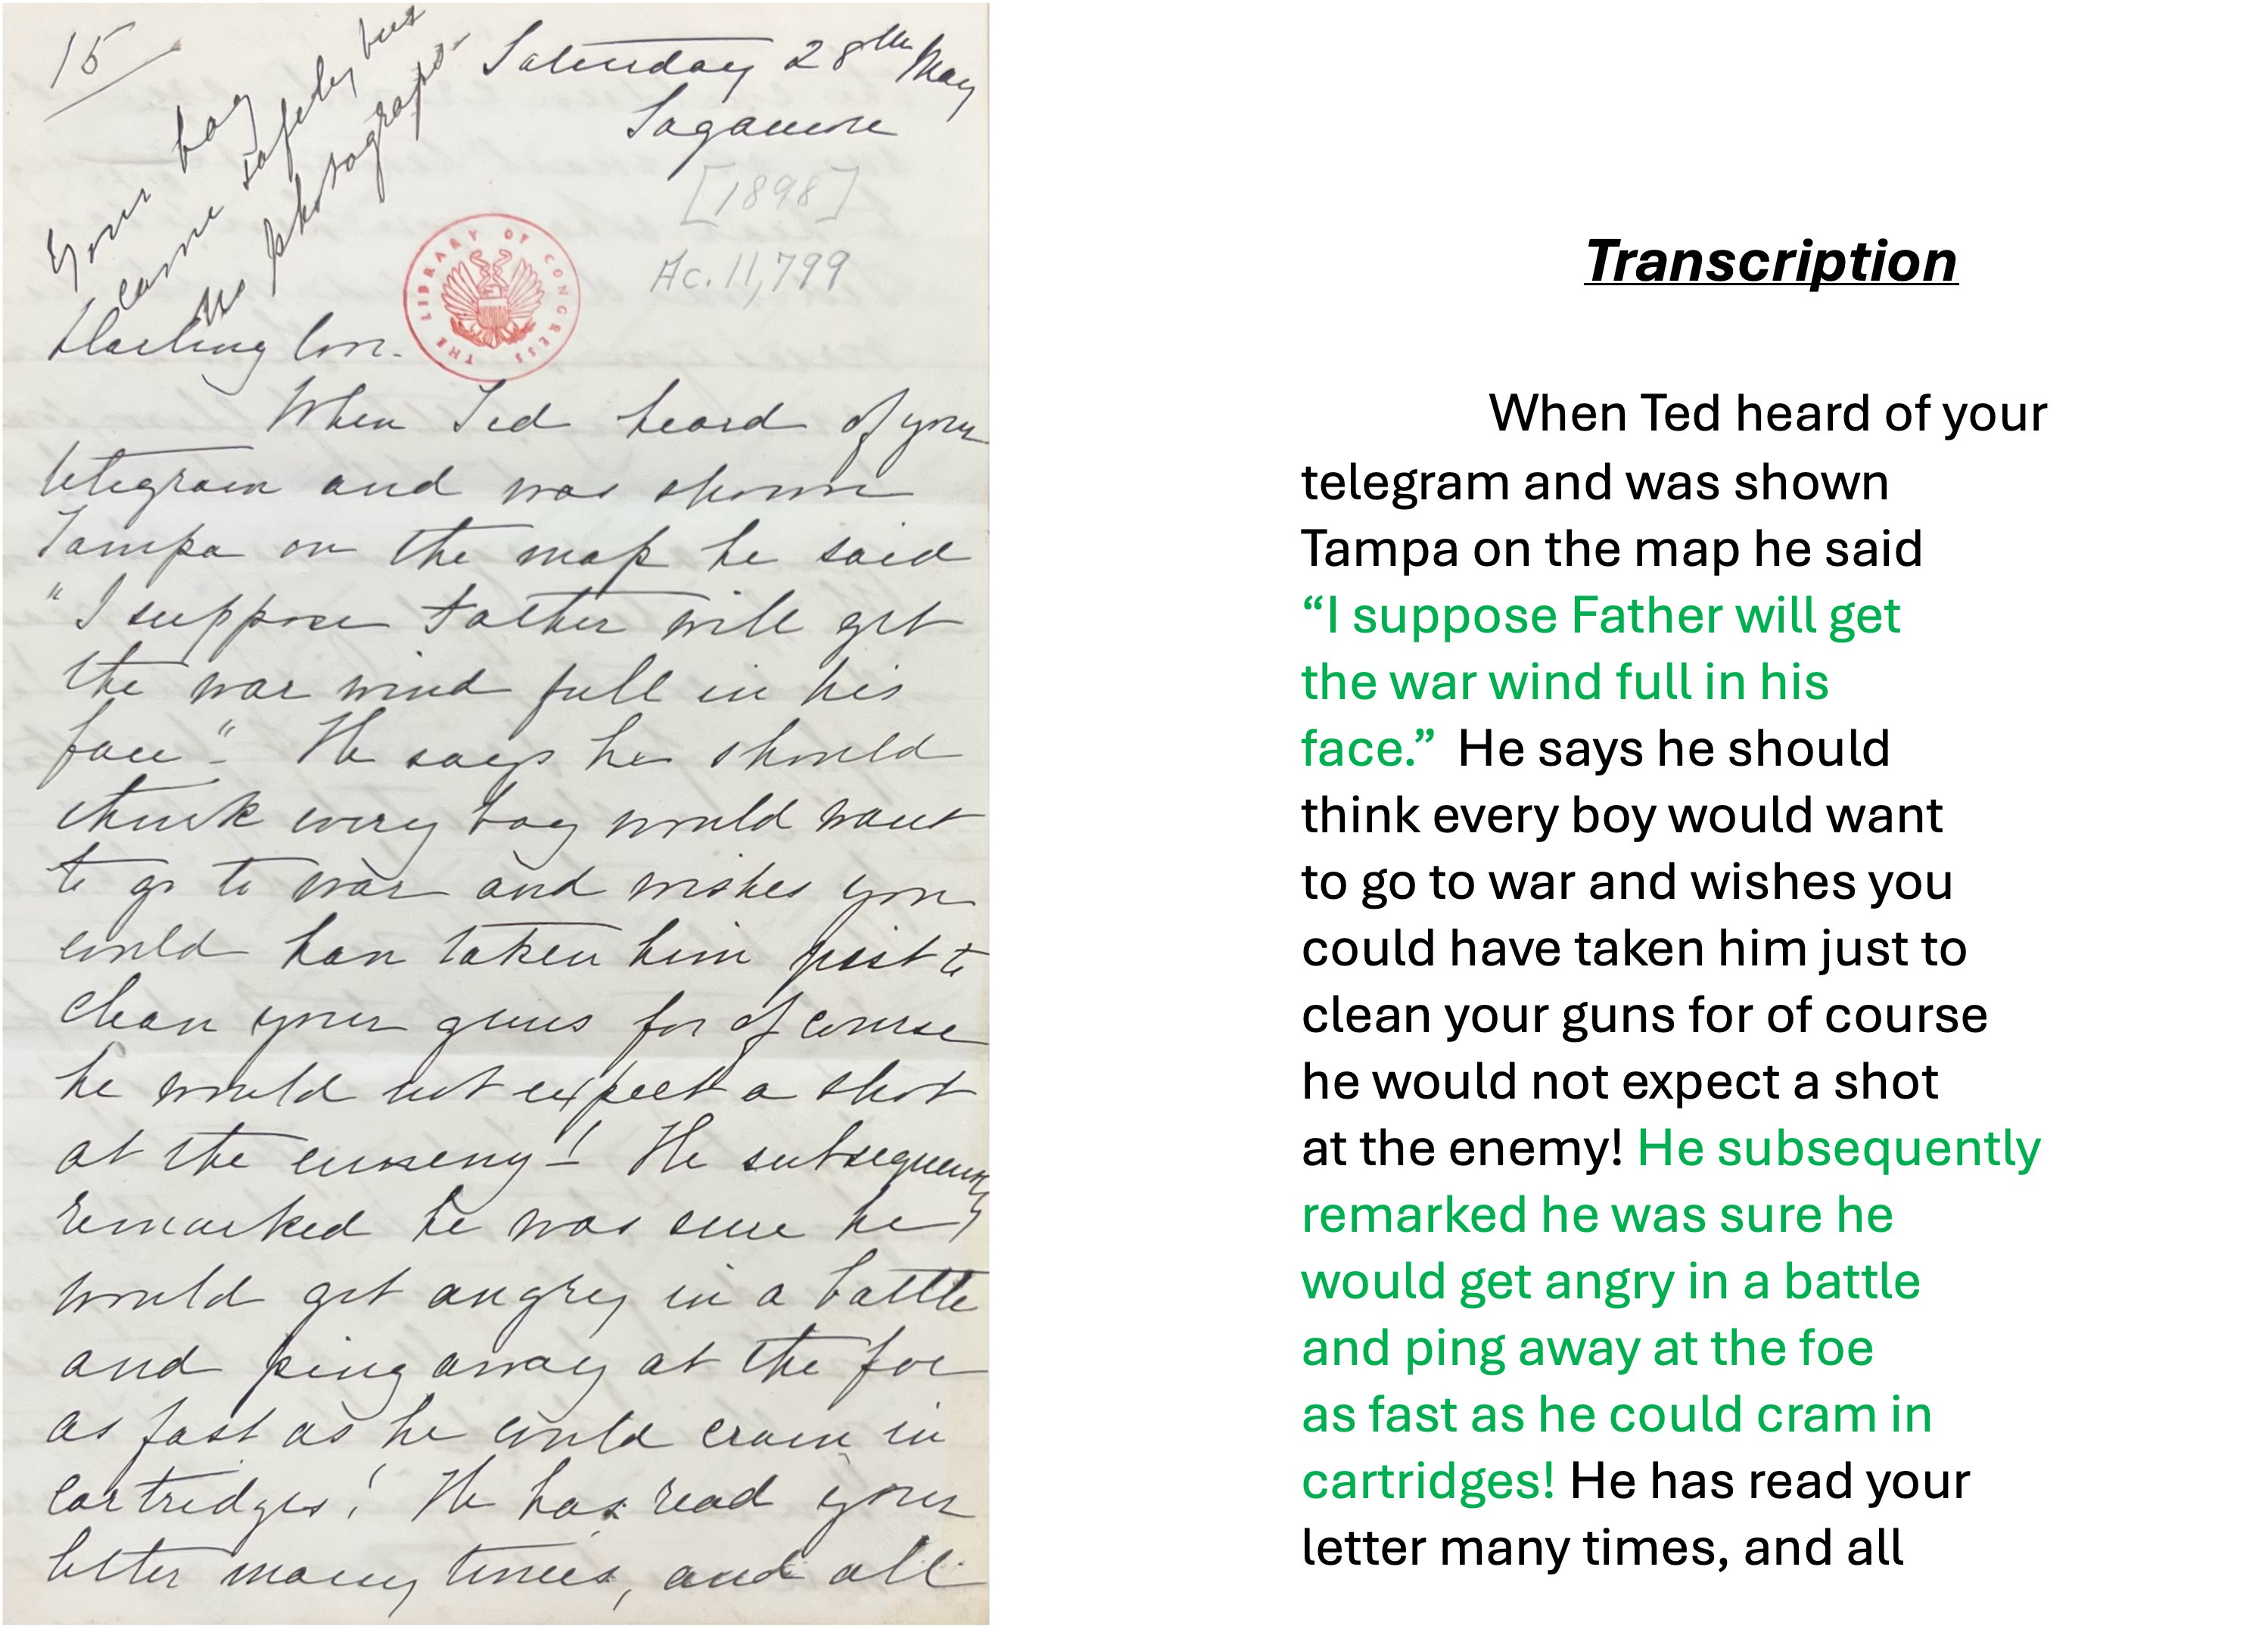 15
Your bag
came safely but
no photographs-
Saturday 28th May
Sagamore
[1898]
Ac. 11,799
THE LIBRARY OF CONGRESS
Darling love.
When Ted heard of your
telegram and was shown
Tampa on the map he said
"I suppose Father will get
the war wind full in his
face". He says he should
think every boy would want
to go to war and wishes you
could have taken him just to
clean your guns for of course
he would not expect a shot
at the enemy! He subsequently
remarked he was sure he
would get angry in a battle
and ping away at the foe
as fast as he could cram in
cartridges! He has read your
letter many times, and all
Transcription
When Ted heard of your
telegram and was shown
Tampa on the map he said
“I suppose Father will get
the war wind full in his
face.” He says he should
think every boy would want
to go to war and wishes you
could have taken him just to
clean your guns for of course
he would not expect a shot
at the enemy! He subsequently
remarked he was sure he
would get angry in a battle
and ping away at the foe
as fast as he could cram in
cartridges! He has read your
letter many times, and all